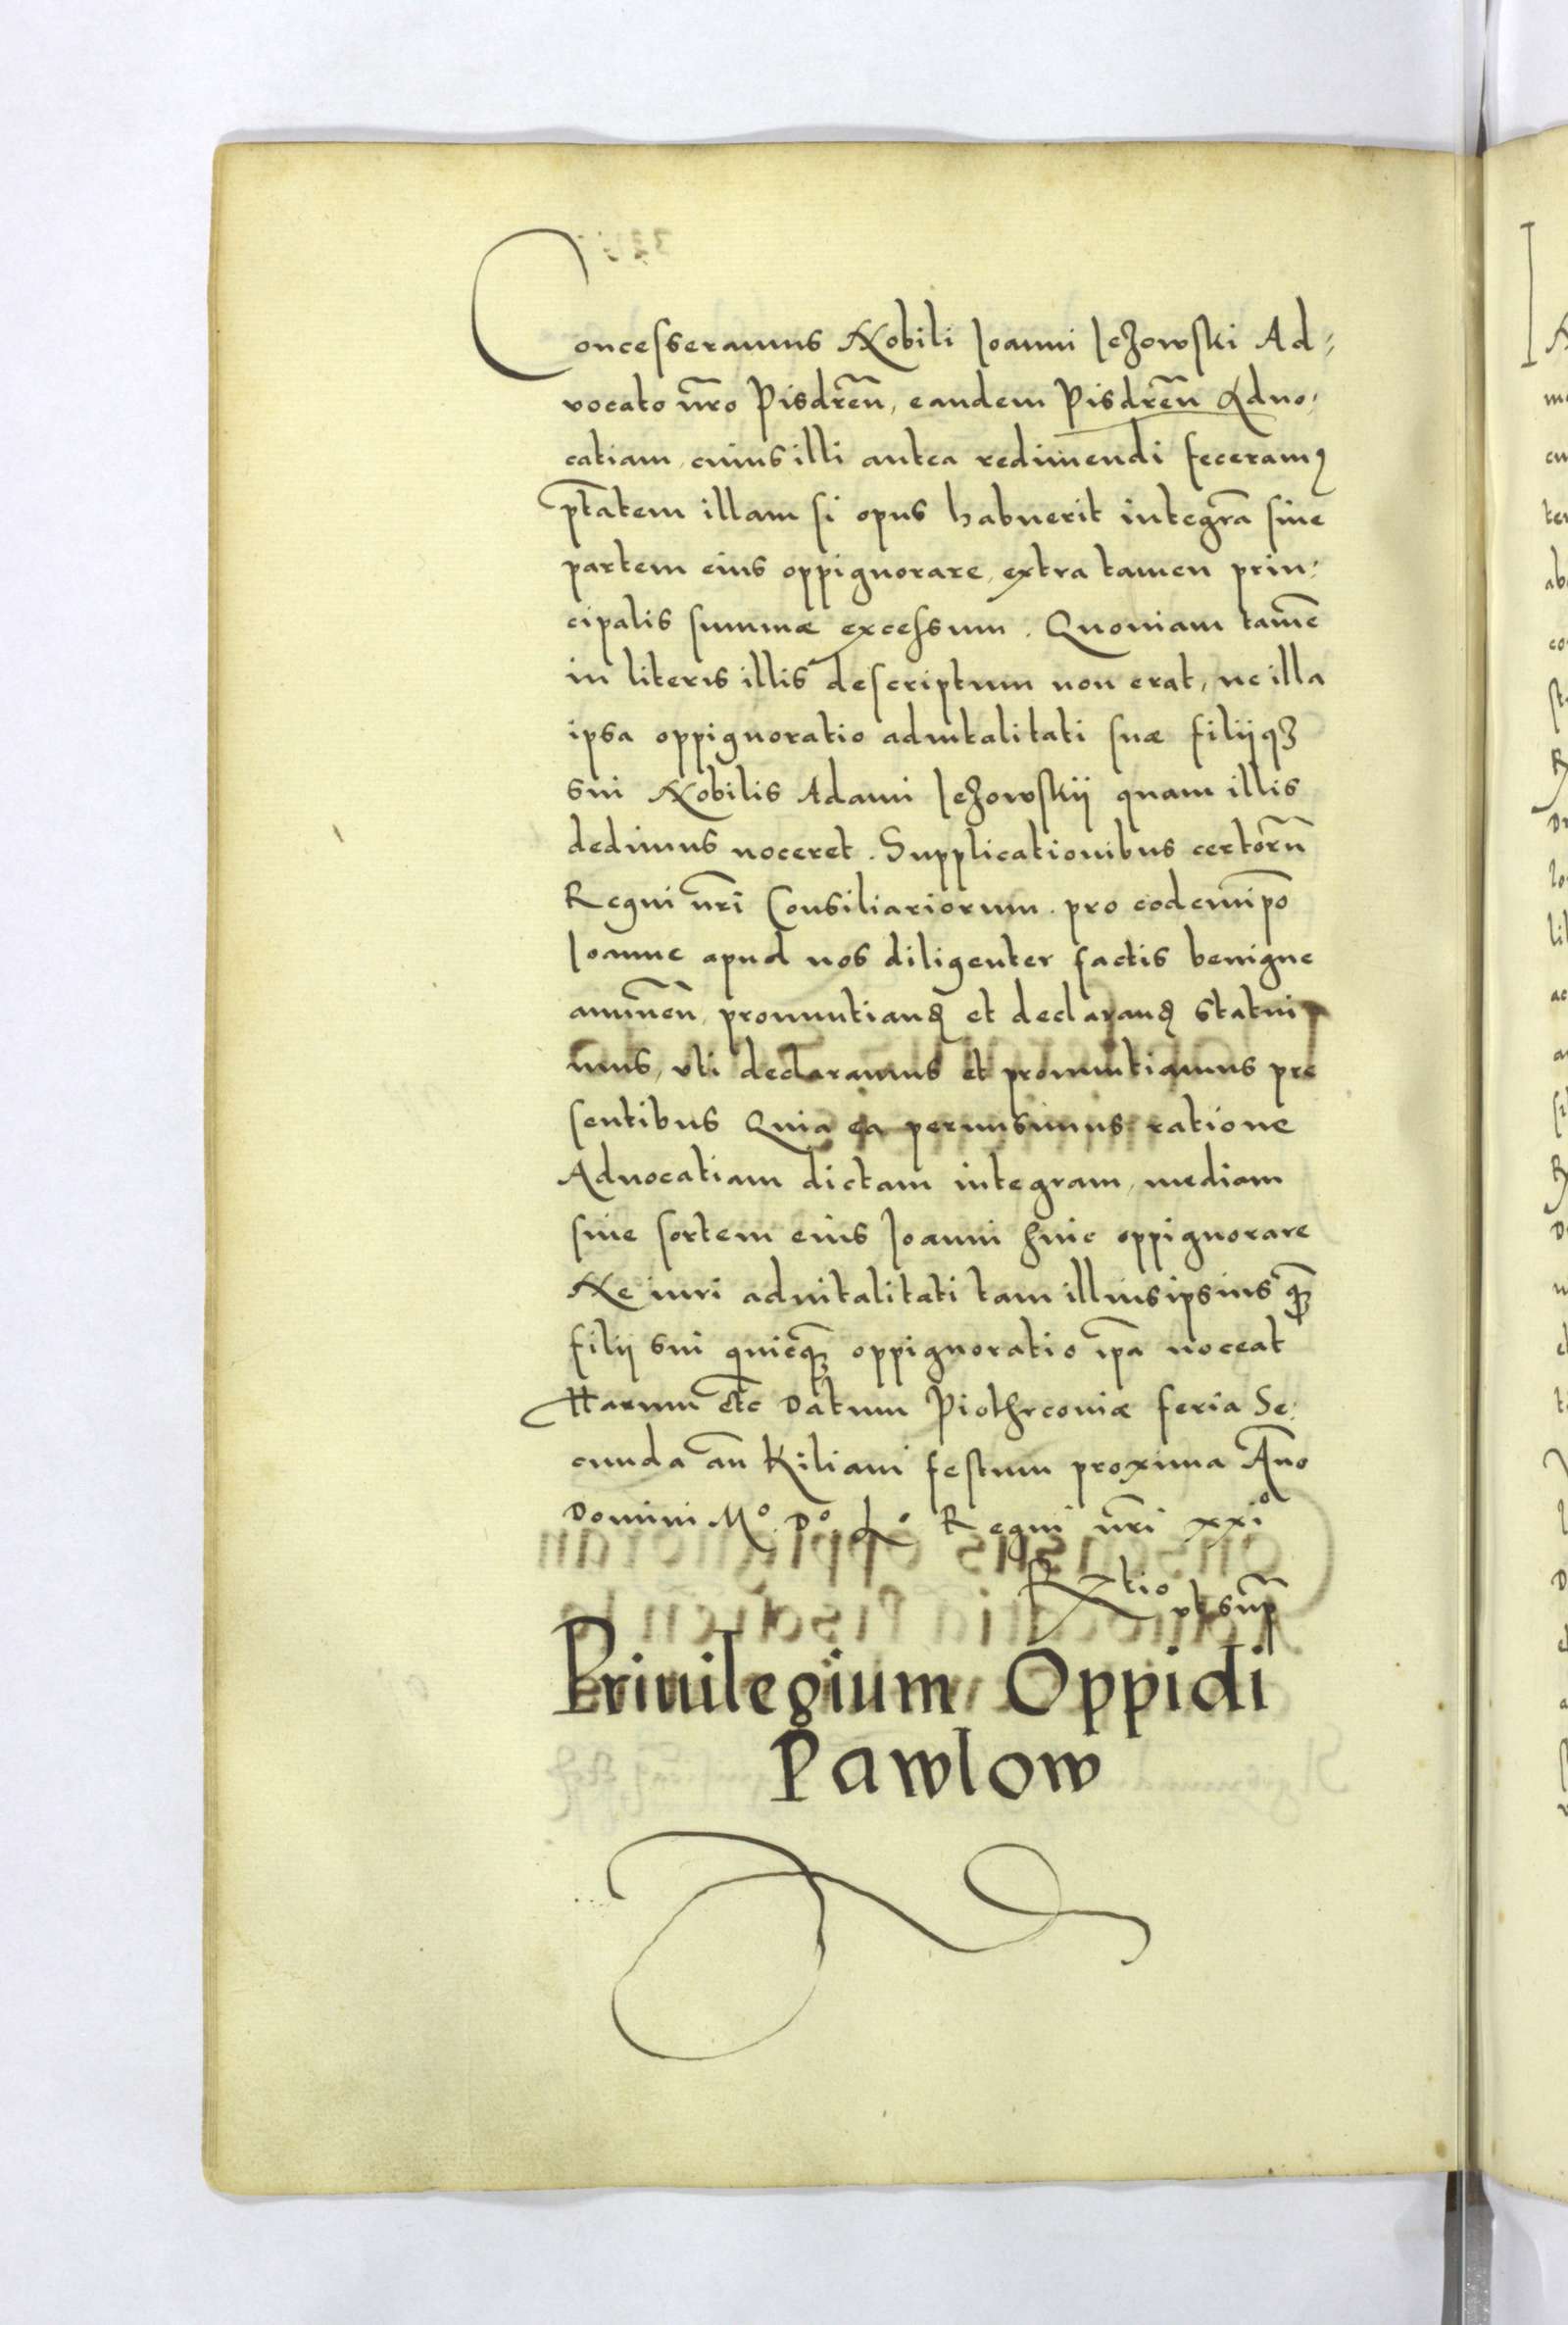 Concesseramus Nobili Ioanni Ieżowski Ad⸗
vocato nr̃o Pisdreñ, eandem Pisdreñ Aduo⸗
catiam, cuius illi antea redimendi feceramꝰ
p̃tatem illam si opus habuerit integrã siue
partem eius oppignorare, extra tamen prin⸗
cipalis summæ excessum. Quoniam tamẽ
in literis illis descriptum non erat, ne illa
ipsa oppignoratio aduitalitati suæ filijqꝫ
sui Nobilis Adami Ieżowskij quam illis
dedimus noceret. Supplicationibus certorũ
Regni nr̃i Consiliariorum. pro eodem ip̃o
Ioanne apud nos diligenter factis benigne
annueñ, pronuntianđ et declaranđ statui
mus, vti declaramus et pronuntiamus pre
sentibus Quia ea permisimus ratione
Aduocatiam dictam integram, mediam
siue sortem eius Ioanni huic oppignorare
Ne iuri aduitalitati tam illius ipsius qꝫ̃
filij sui quicqꝫ̃ oppignoratio ip̃a noceat
Harum etc̃ Datum Piothrcouiæ feria Se⸗
cunda añ Kiliani festum proxima Año
Domini Mº. Dº Lº Regni nr̃i xxiº
Rtio vt sup̃
Priuilegium Oppidi
Pawlow